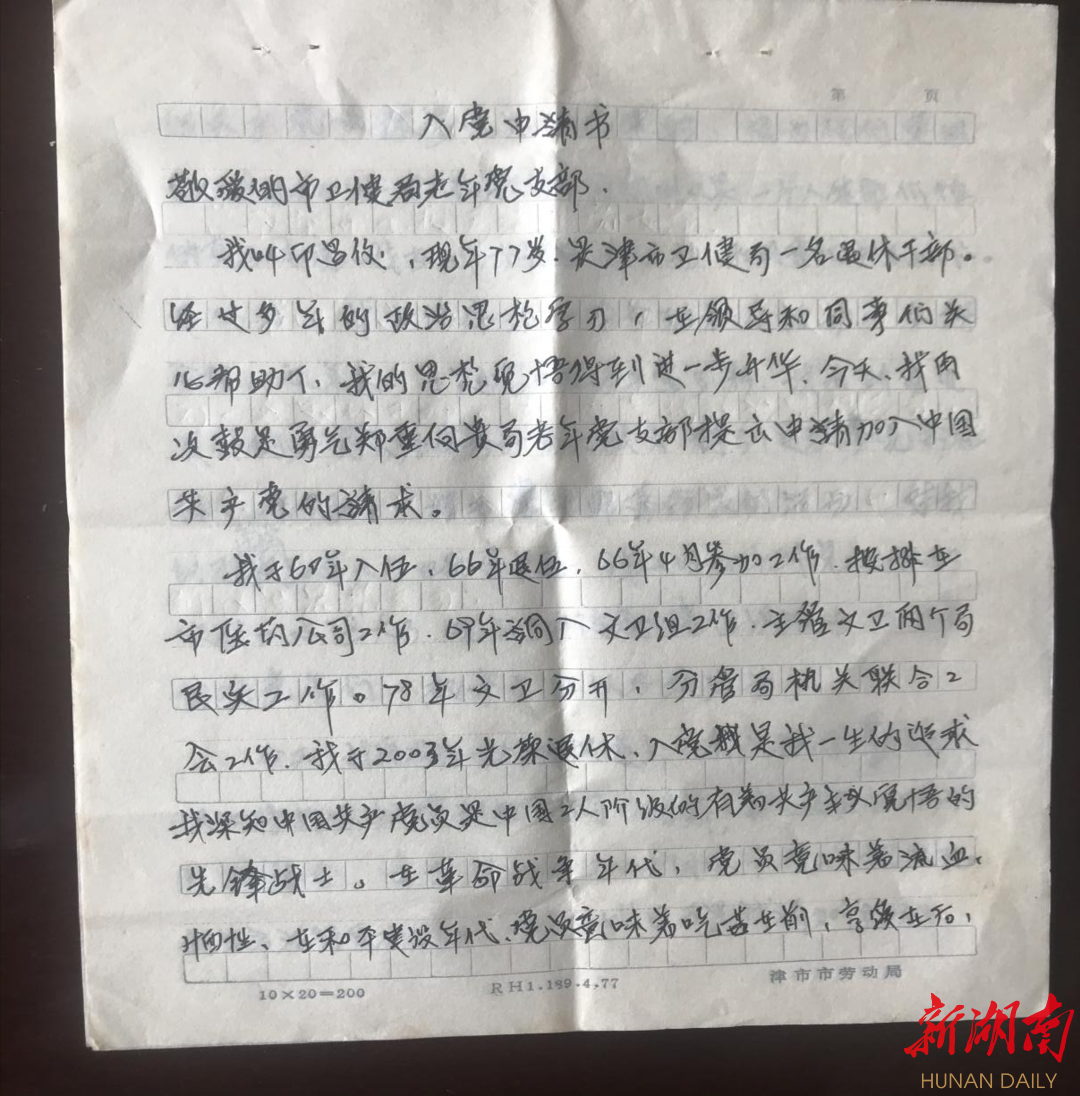 第 页
入党申请书
敬爱的市卫健局老年党支部.
我叫印昌仪,现年77岁.是津市卫健局一名退休干部。
经过多年的政治思想学习,在领导和同事们关
心帮助下、我的思想觉悟得到进一步升华、今天、我再
次鼓足勇气郑重向贵局老年党支部提出申请加入中国
共产党的请求。
我于60年入伍、66年退伍,66年4月参加工作.按排在
市医药公司工作.69年调入文卫组工作.主管文卫两个局
民兵工作。78年文卫分开,分管局机关联合工
会工作.我于2003年光荣退休、入党是我一生的追求
我深知中国共产党员是中国工人阶级的有着共产主义觉悟的
先锋战士。在革命战争年代,党员意味着流血.
牺牲、在和平建设年代、党员意味着吃苦在前,享受在后,
10×20=200
RH1.189.4.77
津市市劳动局
新湖南
HUNAN DAILY